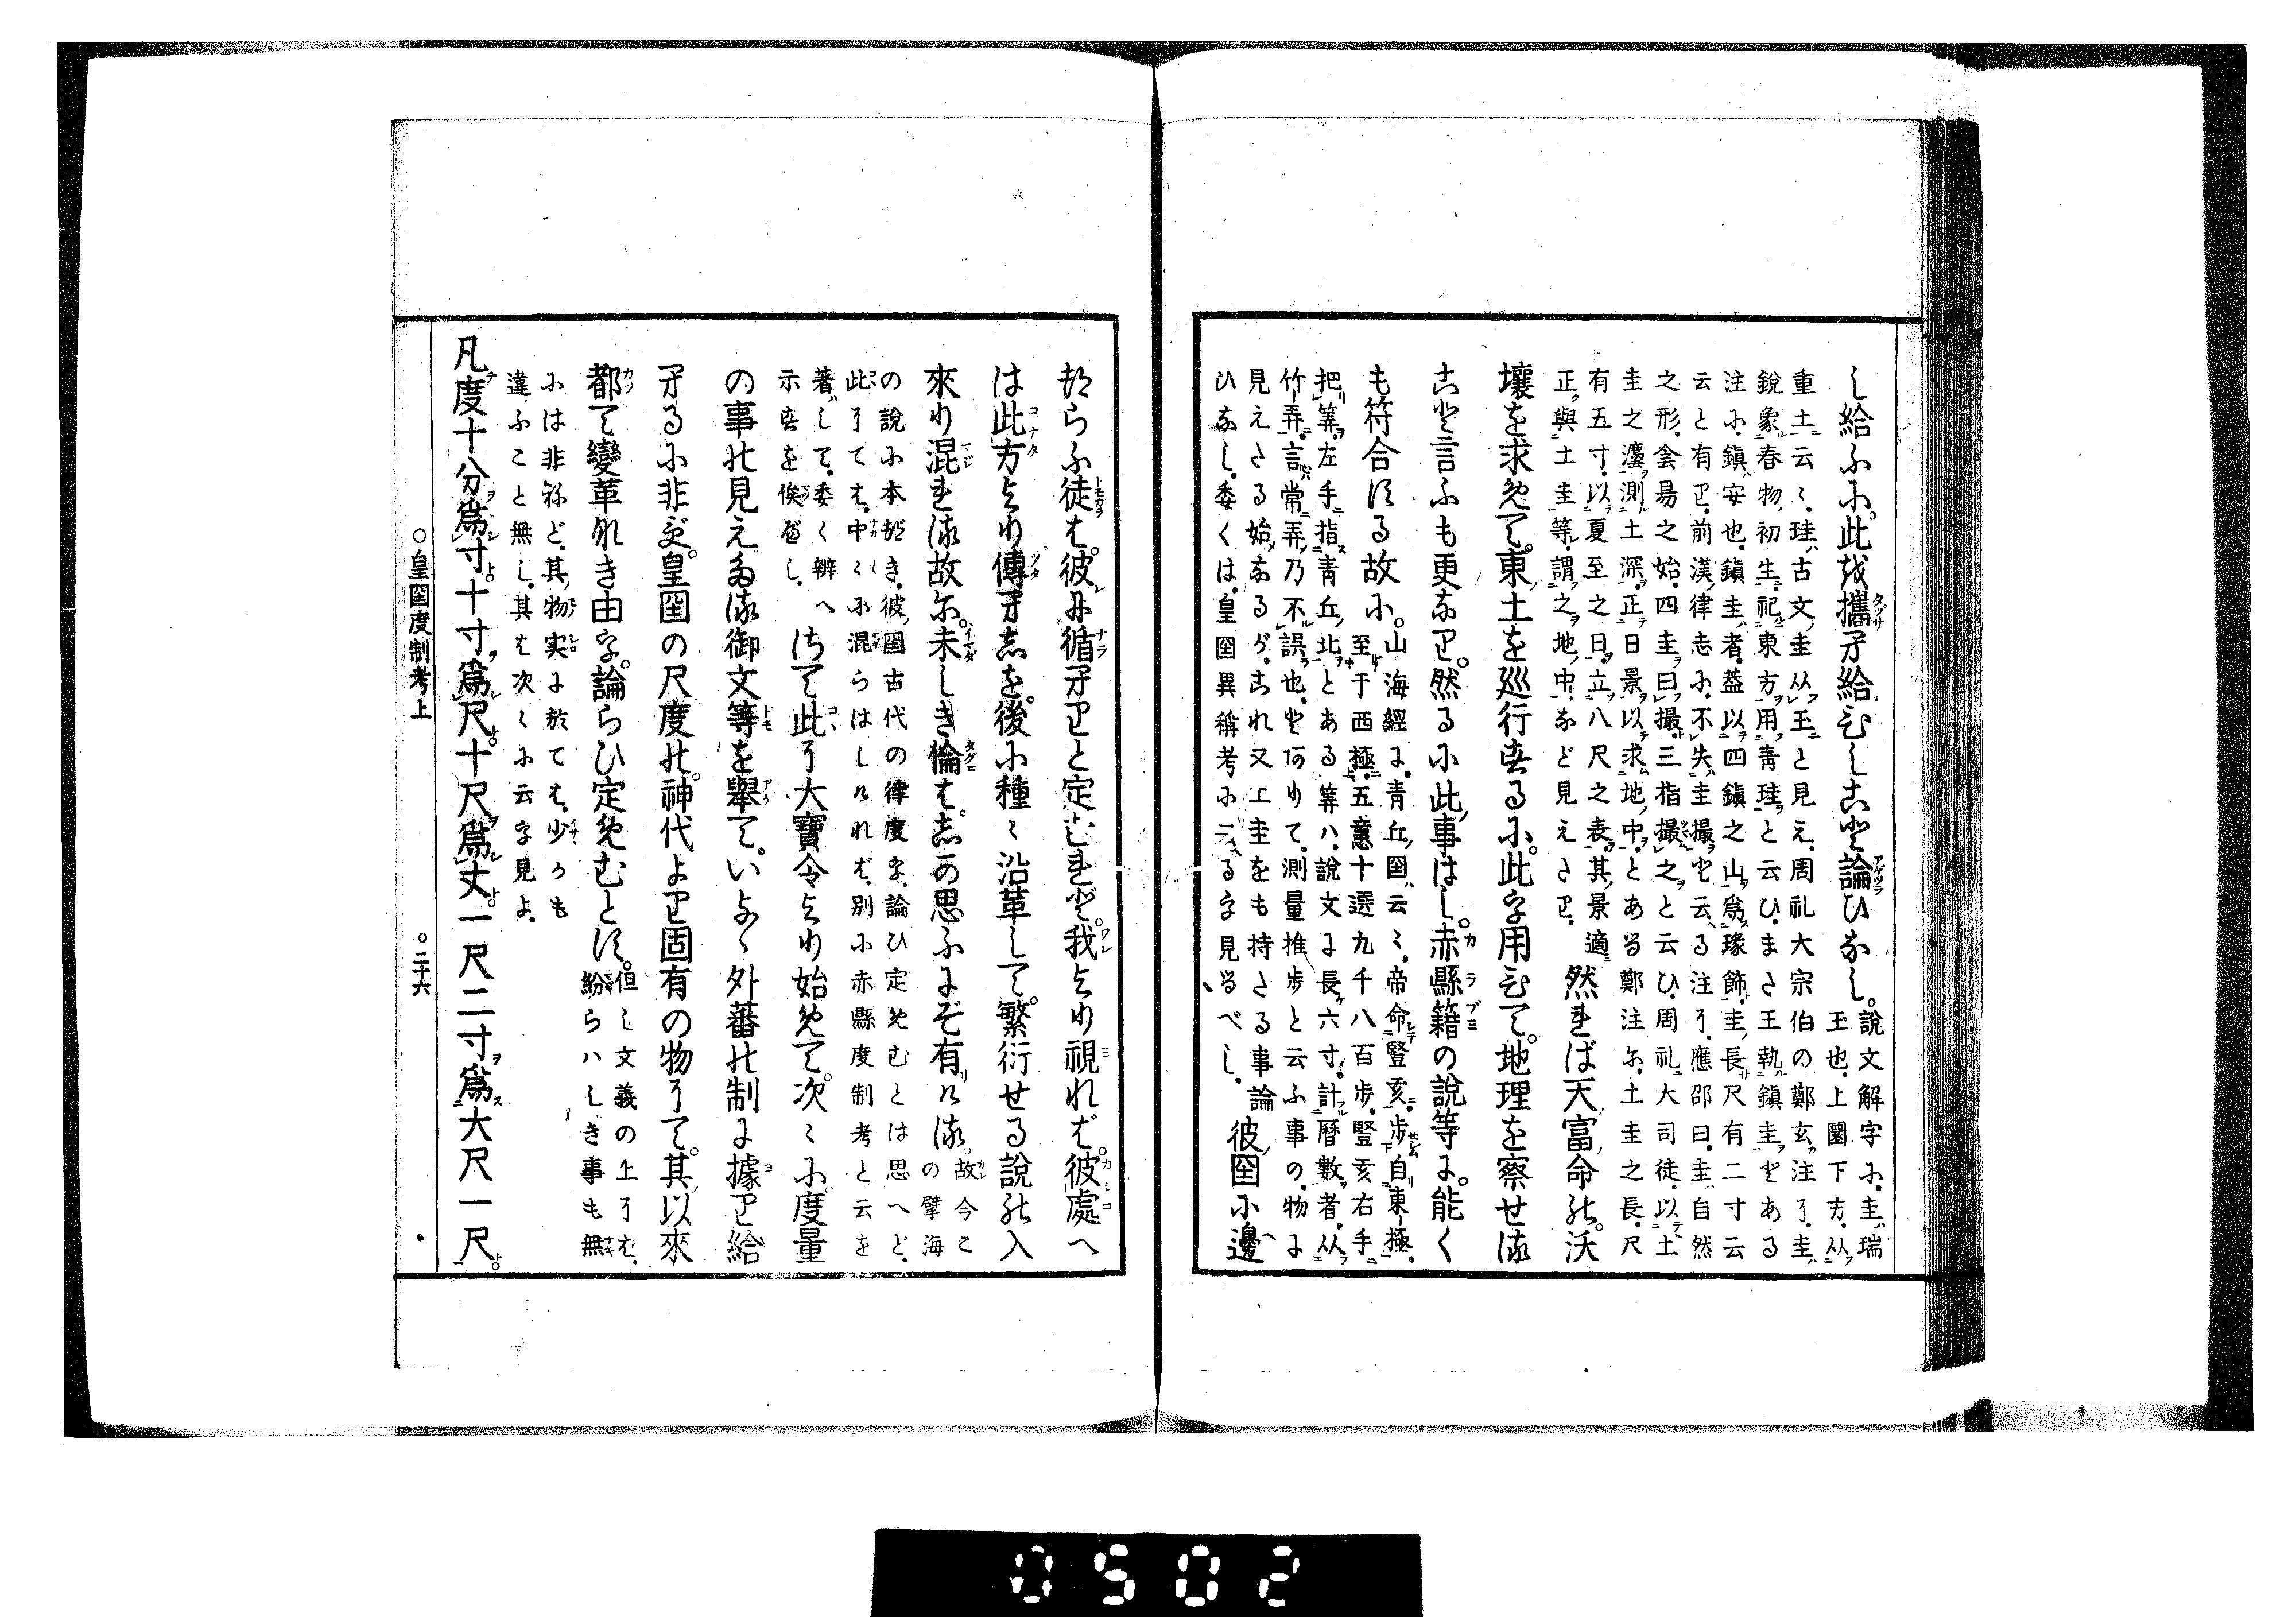 し給ふに。此を攜り給ひしこと論ひなし。說文解字に、圭瑞
玉也、上圜下方、从
重土云々、珪古文圭从玉と見え、周礼大宗伯の鄭玄注に、圭
銳象春物初生、祀東方用青珪と云ひ、また王執鎮圭とある
注に、鎮安也、鎮圭者、蓋以四鎮之山爲瑑飾、圭長尺有二寸云
云と有り、前漢律志に、不失圭撮と云へる注に、應邵曰、圭自然
之形、会昜之始、四圭曰撮、三指撮之と云ひ、周礼大司徒、以土
圭之灋測土深、正日景以求地中とある鄭注に、土圭之長、尺
有五寸、以夏至之日、立八尺之表、其景適
正與土圭等、謂之地中など見えたり、
然れば天富命の。沃
壤を求めて。東土を巡行する に。此を用ひて。地理を察せる
こと言ふも更なり。然るに此事はし。赤縣籍の說等に。能く
も符合する故に。山海經に、青丘國云々、帝命豎亥、步自東極、
至于西極、五億十選九千八百步、豎亥右手
把筭、左手指青丘北とある筭ハ、說文に長六寸、計曆數者、从
竹弄、言常弄乃不誤也、とありて、測量推步と云ふ事の、物に
見えたる始なるが、これ又上圭をも持たる事論
ひなし、委くは、皇國異稱考に云へるを見るべし、
彼國に邊
都らふ徒は。彼に循りりと定むれど。我より視れば。彼處へ
は此方より傳りしを。後に種々沿革して。繁衍せる說の入
來り混れる故に。未しき倫は。しか思ふにぞ有ける故今こ
の譬海
の說に本づき、彼國古代の律度を、論ひ定めむとは思へど、
此にては、中々に混らはしければ、別に赤縣度制考と云を
著して、委く辨へ
示すを俟べし、
さて此に大寶令より始めて。次々に度量
の事の見えたる御文等を舉て。いよゝ外蕃の制に據り給
へるに非ず。皇國の尺度の。神代より固有の物にて。其以來
都て變革なき由を。論らひ定めむとす。但し文義の上には、
紛らハしき事も無
には非ねど、其物実に於ては、少かも
違ふこと無し、其は次々に云を見よ、
凡度十分爲寸十寸爲尺十尺爲丈一尺二寸爲大尺一尺
○皇國度制考上
○二十六
0502